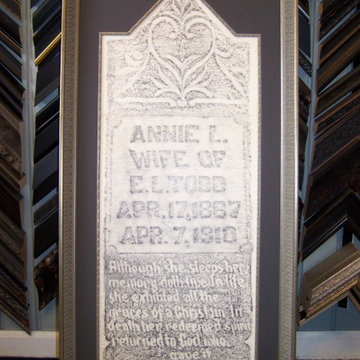 ANNIE L.
WIFE OF
E.L. TODD
APR. 17, 1887
APR. 7, 1910
Although she sleeps her
memory doth live. In life
she exhibited all the
graces of a Christian. In
death her redeemed spirit
returned to God who
gave it